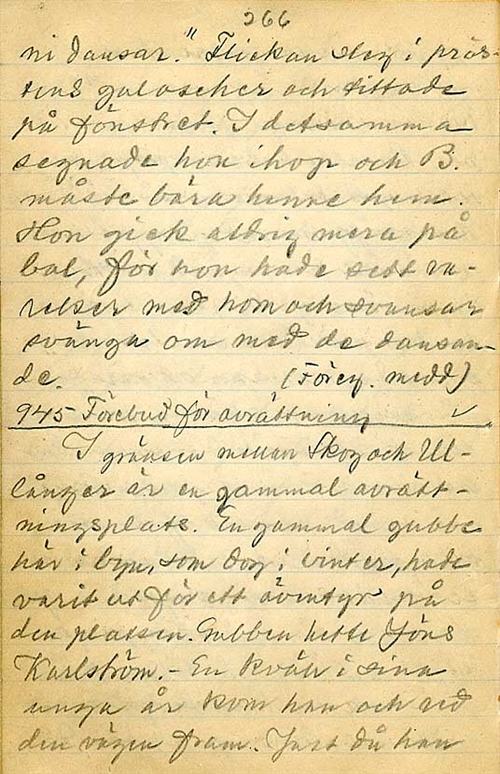 266
ni dansar." Flickan steg i präs-
tens galoscher och tittade
på fönstret. I detsamma
segnade hon ihop och B.
måste bära henne hem.
Hon gick aldrig mera på
bal, för hon hade sett va-
relser med horn och svansar
svänga om med de dansan-
de. (Föreg. medd)
945 Förebud för avrättning ✓
I gränsen mellan Skog och Ul-
långer är en gammal avrätt-
ningsplats. En gammal gubbe
här i byn, som dog i vinter, hade
varit ut för ett äventyr på
den platsen. Gubben hette Jöns
Karlström. - En kväll i sina
unga år kom han och red
den vägen fram. Just då han